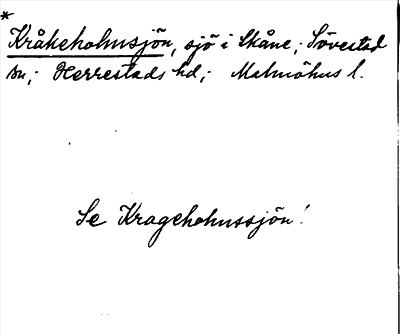 *
Kråkeholmsjön, sjö i Skåne; Sövestad
sn; Herrestads hd; Malmöhus l.
Se Krageholmssjön!